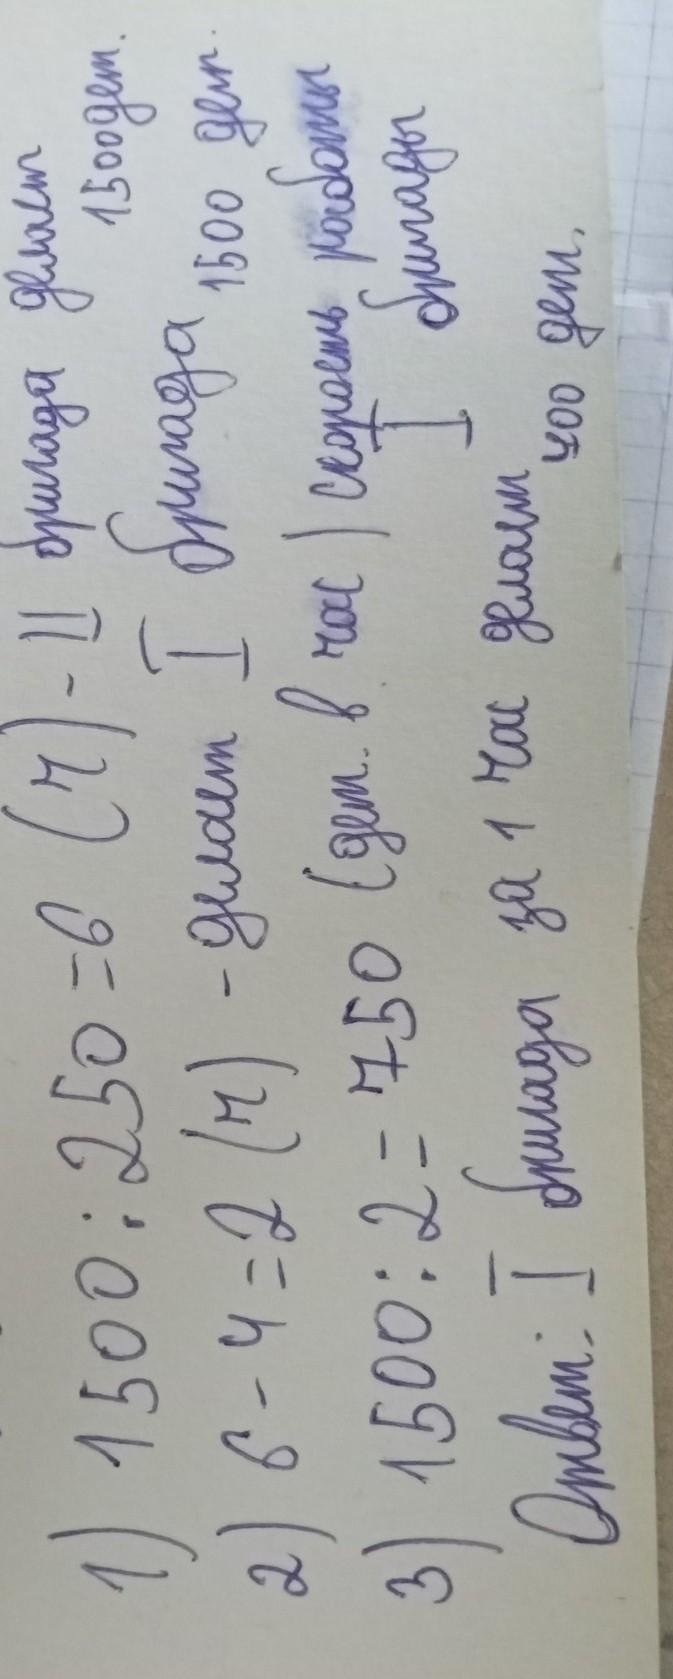 1) 1500 : 250 = 6 (ч) - II бригада делает
1500 дет.
2) 6 - 4 = 2 (ч) - делает I бригада
1500 дет.
3) 1500 : 2 = 750 (дет. в час) скорость работы
I бригады
Ответ: I бригада за 1 час делает
700 дет.